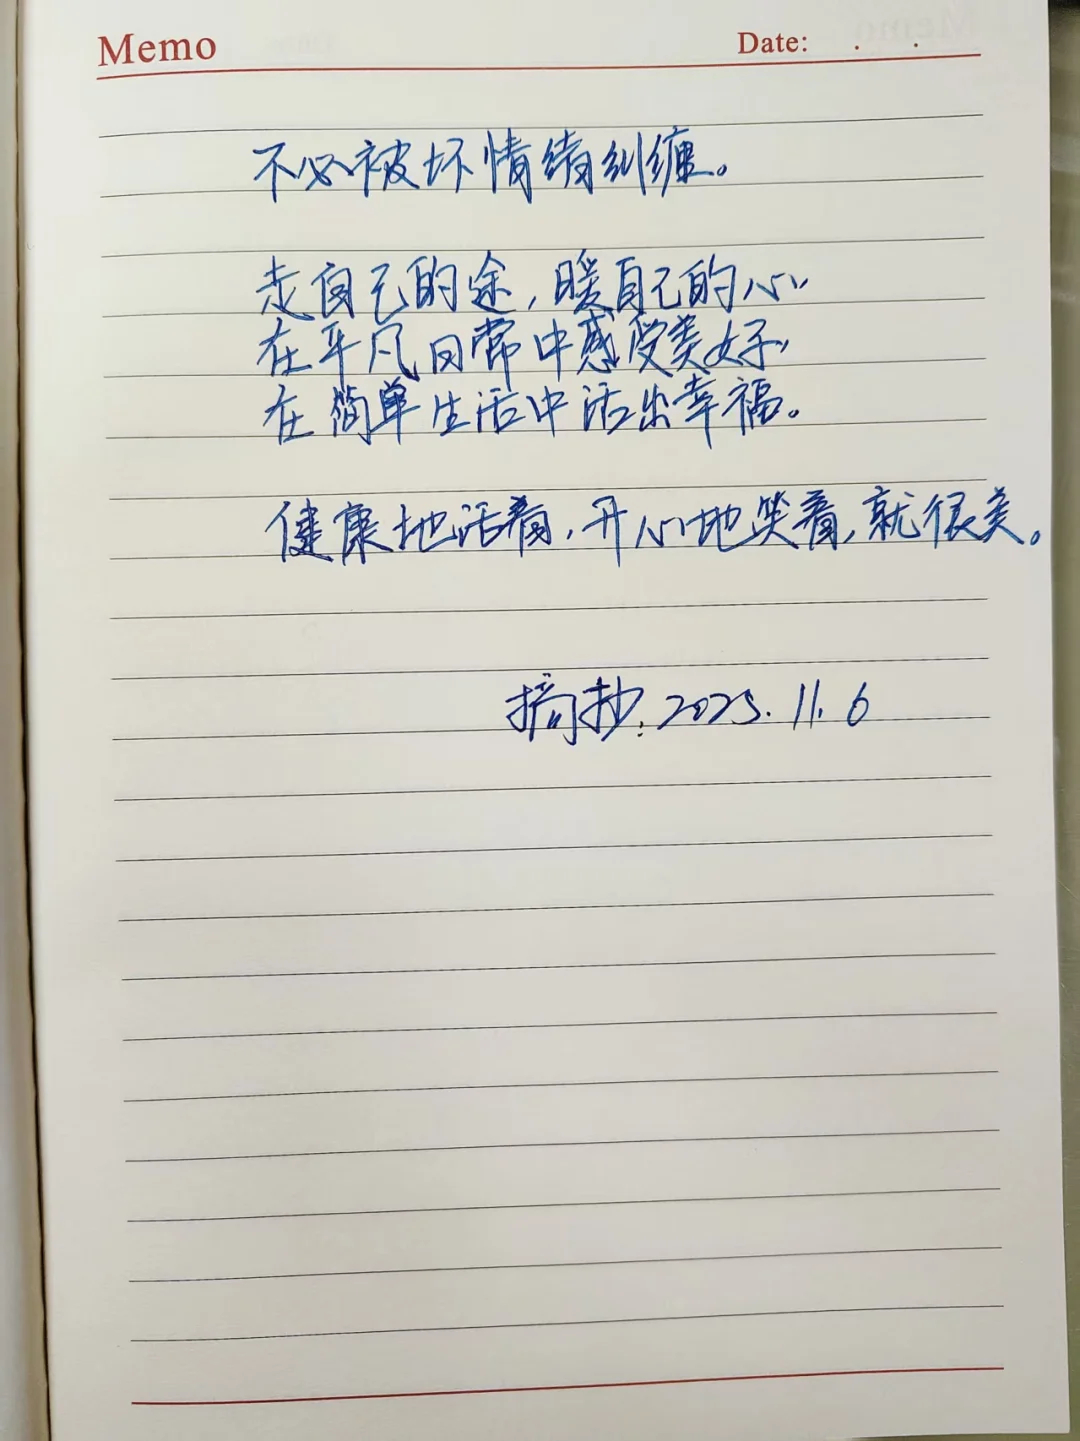 Memo
Date: . .
不必被坏情绪纠缠。
走自己的途,暖自己的心,
在平凡日常中感受美好,
在简单生活中活出幸福。
健康地活着,开心地笑着,就很美。
摘抄:2025.11.6